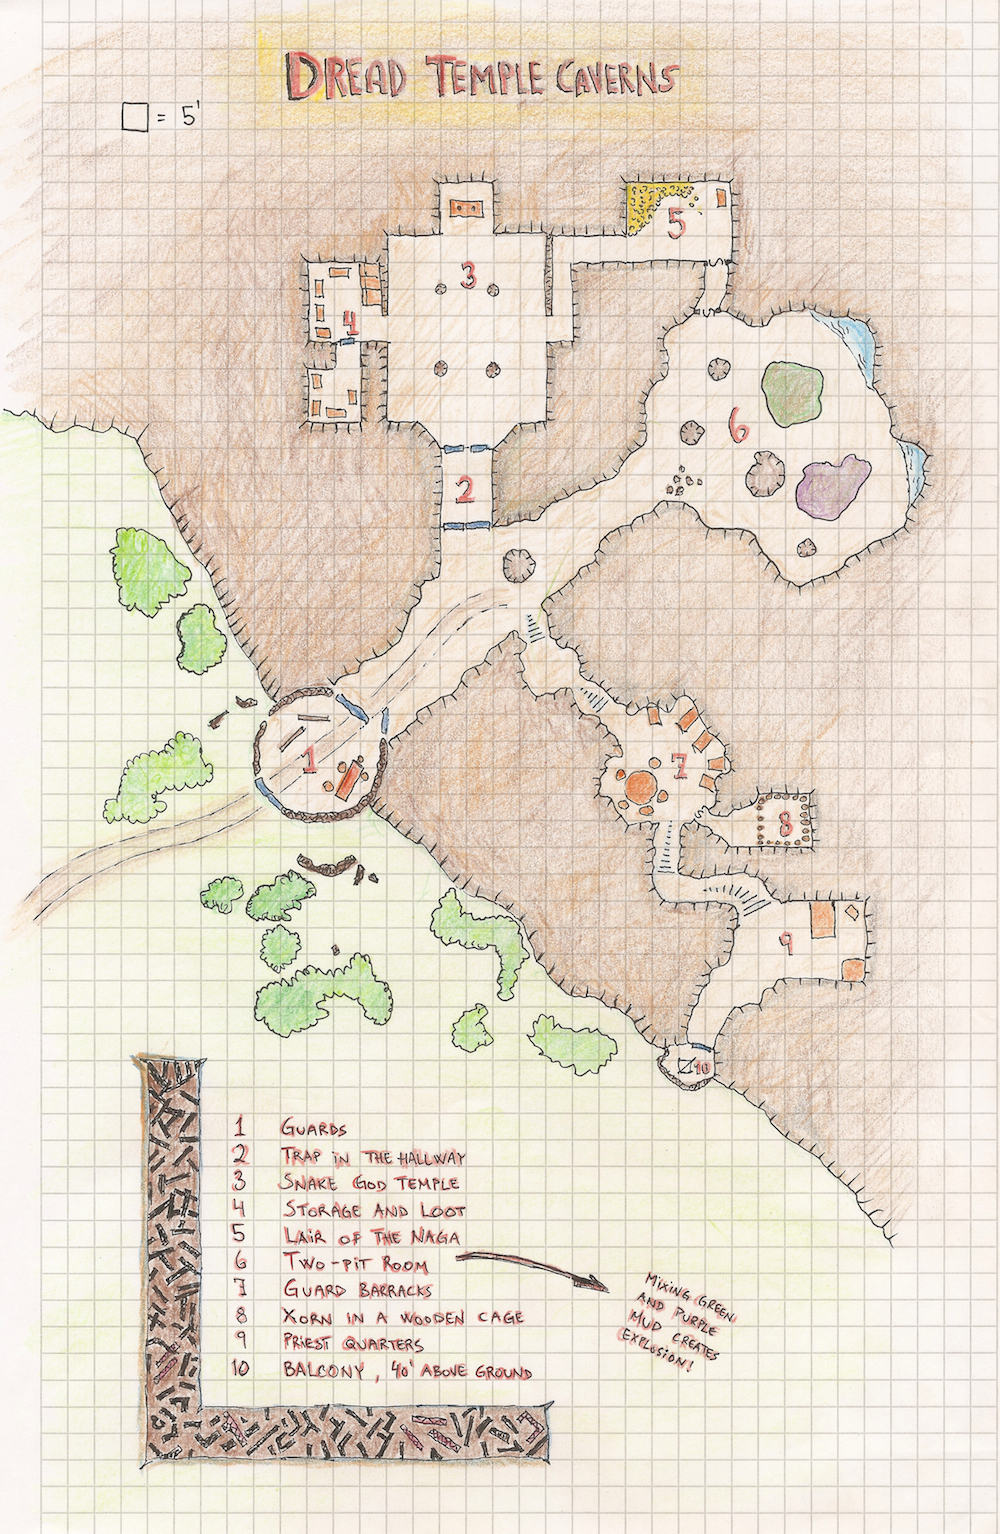 DREAD TEMPLE CAVERNS
= 5'
5
3
4
6
2
7
1
8
9
10
1 GUARDS
2 TRAP IN THE HALLWAY
3 SNAKE GOD TEMPLE
4 STORAGE AND LOOT
5 LAIR OF THE NAGA
6 TWO-PIT ROOM
7 GUARD BARRACKS
8 XORN IN A WOODEN CAGE
9 PRIEST QUARTERS
10 BALCONY, 40' ABOVE GROUND
MIXING GREEN
AND PURPLE
MUD CREATES
EXPLOSION!